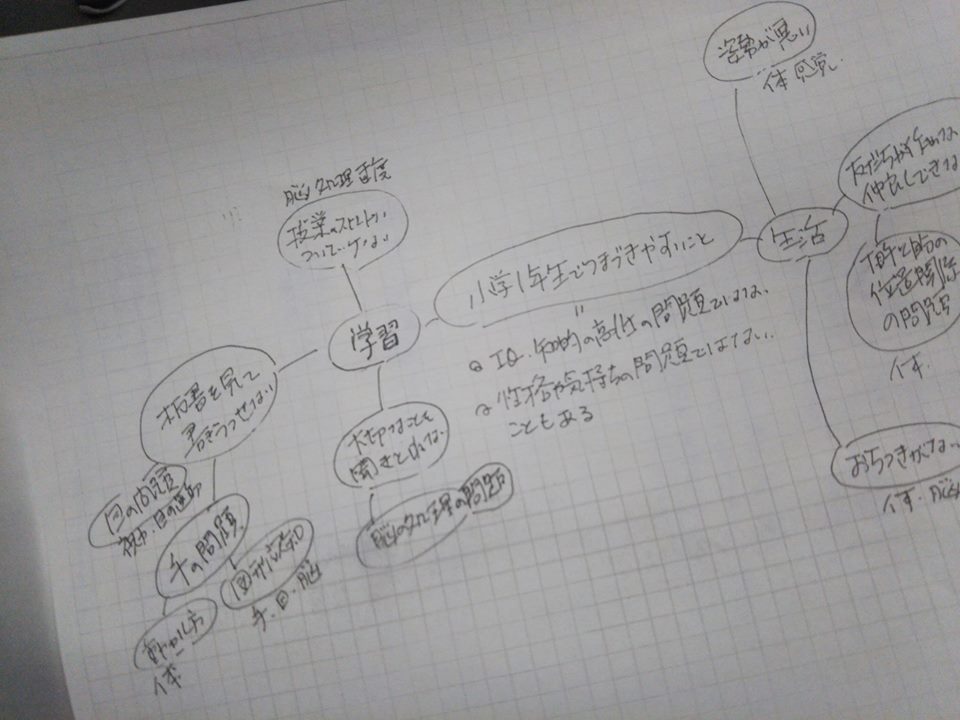 姿勢が悪い
体感覚
脳処理速度
授業のスピードに
ついていけない
友だちが作れな
仲良しできな
生活
小学1年生でつまづきやすいこと
学習
自分と自分の
位置関係
の問題
体
IQ・知的の高低の問題ではな
性格や気持ちの問題ではない
こともある
板書を見て
書きうつせない
大切なことを
聞きとれない
おちつきがない
体・脳
目の問題
視力・目の運動
手の問題
脳の処理の問題
図形認知
手・目・脳
動かし方
体